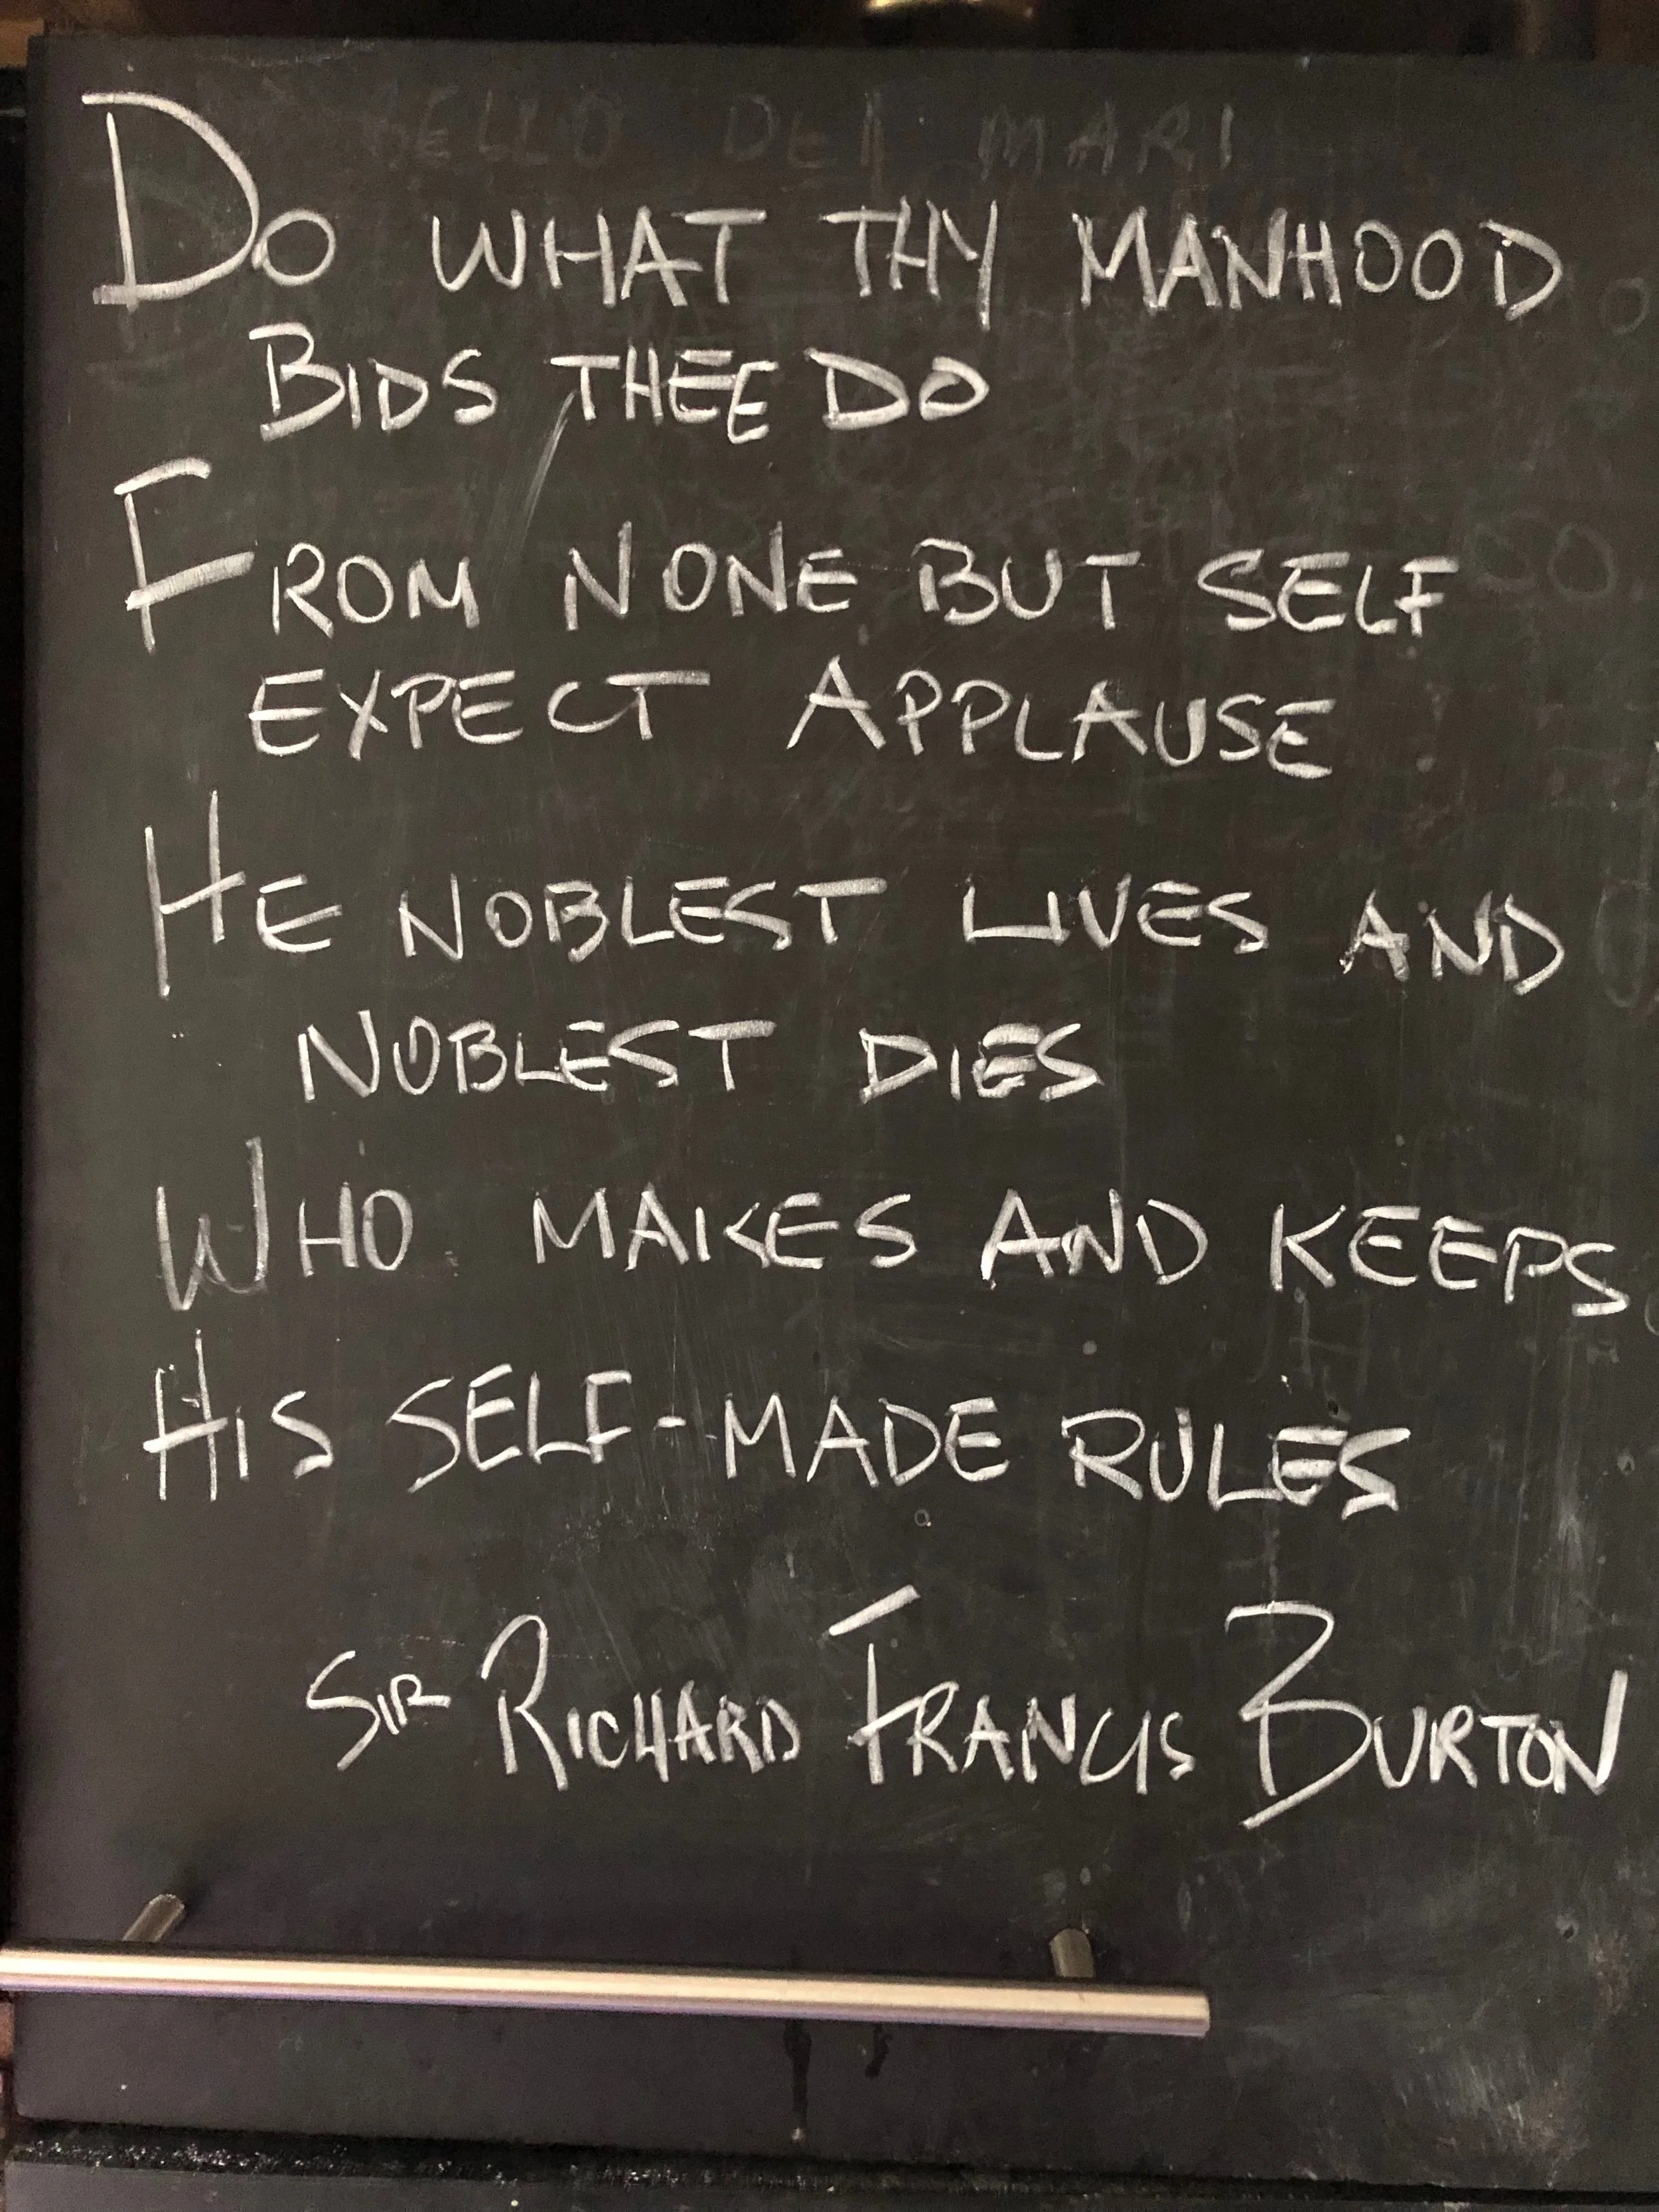 DO WHAT THY MANHOOD
BIDS THEE DO
FROM NONE BUT SELF
EXPECT APPLAUSE
HE NOBLEST LIVES AND
NOBLEST DIES
WHO MAKES AND KEEPS
HIS SELF-MADE RULES
SIR RICHARD FRANCIS BURTON